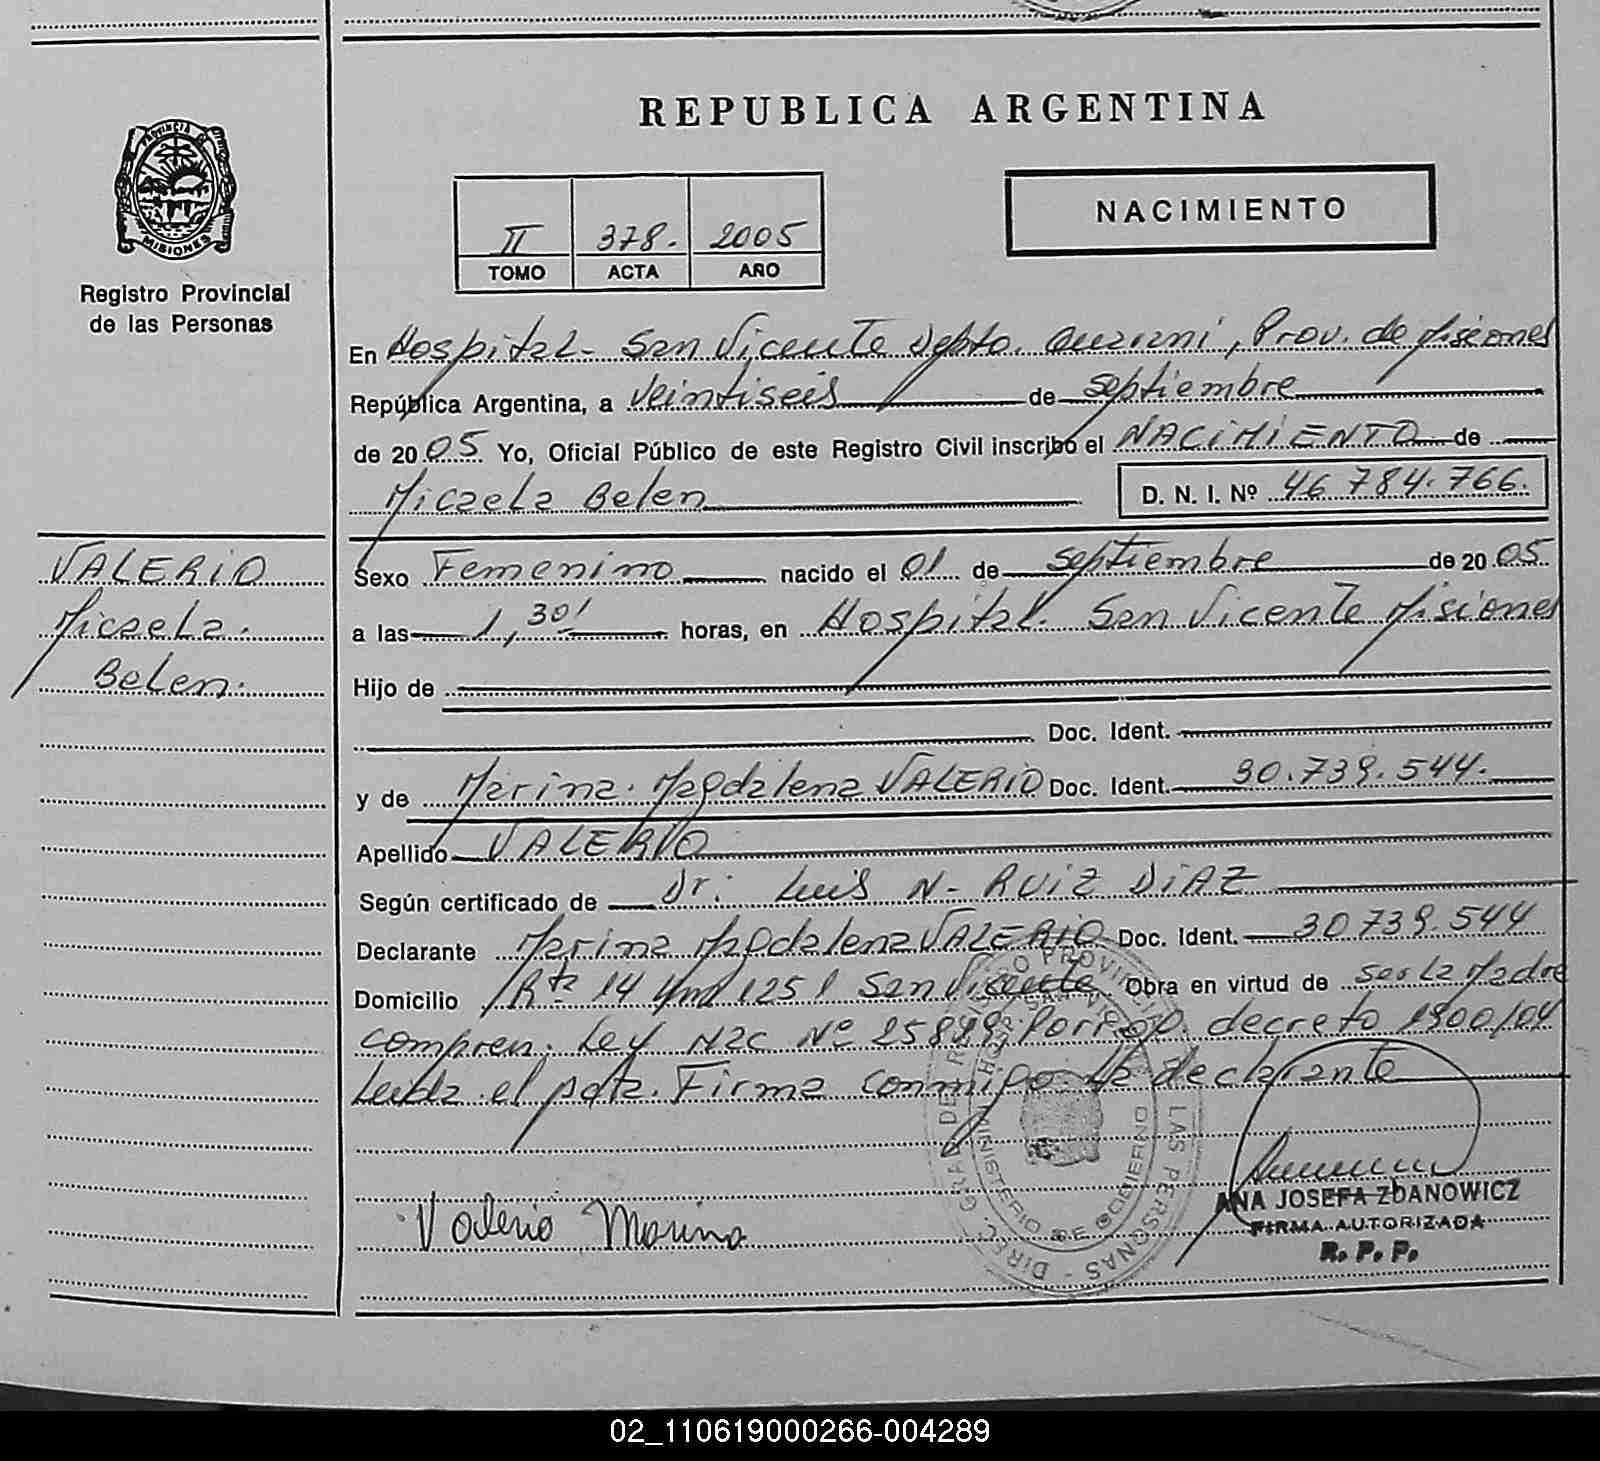 REPUBLICA ARGENTINA
PROVINCIA DE
MISIONES
Registro Provincial
de las Personas
II 378. 2005
TOMO ACTA AÑO
NACIMIENTO
En Hospital - San Vicente Depto. Guarani, Prov. de Misiones
República Argentina, a veintiseis de septiembre
de 2005 Yo, Oficial Público de este Registro Civil inscribo el NACIMIENTO de
Micaela Belen D. N. I. Nº 46 784.766.
VALERIO
Micaela.
Belen.
Sexo Femenino nacido el 01 de septiembre de 2005.
a las 1,30' horas, en Hospital. San Vicente Misiones
Hijo de
Doc. Ident.
y de Marina. Magdalena VALERIO Doc. Ident. 30.739.544.
Apellido VALERIO
Según certificado de Dr: Luis N- RUIZ DIAZ
Declarante Marina Magdalena VALERIO Doc. Ident. 30 739.544
Domicilio Rta 14 1251 San Vicente Obra en virtud de ser la Madre
compren. Ley Nac Nº decreto 1900/04
Leida el acta. Firma conmigo la declarante
Valerio Marina
ANA JOSEFA ZDANOWICZ
FIRMA AUTORIZADA
R. P. P.
MINISTERIO DE GOBIERNO
LAS PERSONAS
02_110619000266-004289